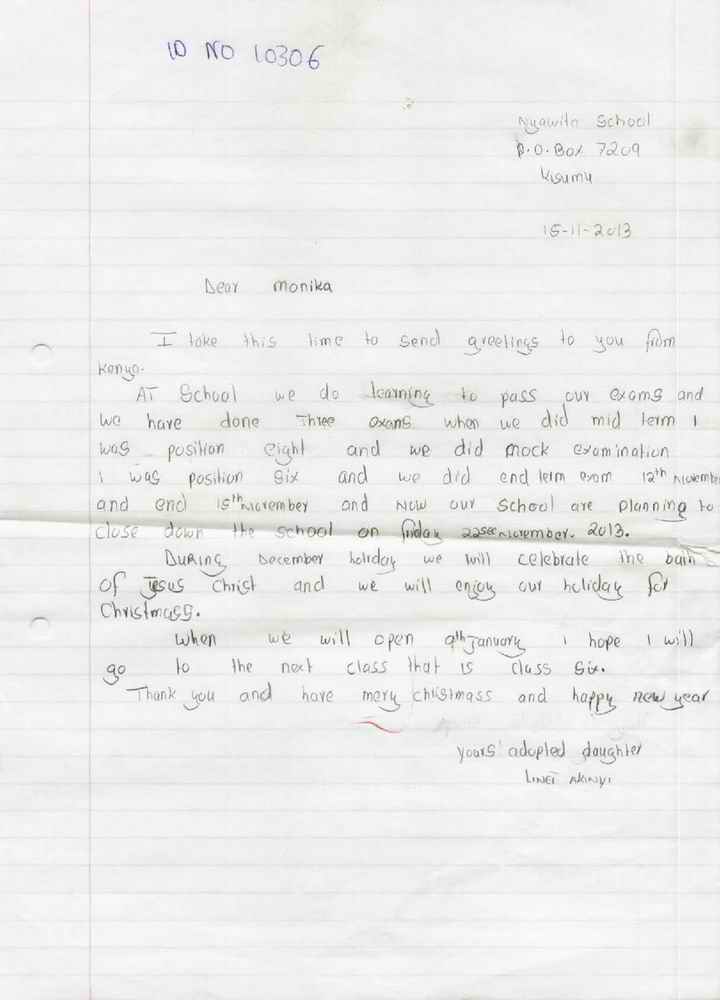 ID NO 10306
Nyawita School
P.O. Box 7209
Kisumu
15-11-2013
Dear monika
I take this time to send greetings to you from
Kenya.
AT School we do learning to pass our exams and
we have done Three exams when we did mid term I
was position eight and we did mock examination
I was position six and we did end term exam 12th November
and end 15th November and Now our School are planning to
close down the school on friday 22sec November. 2013.
DURING December holiday we will celebrate the
of Jesus Christ and we will enjoy our holiday for
Christmass.
When we will open 9th January I hope I will
go to the next class that is class six.
Thank you and have mery christmass and happy new year
yours' adopted daughter
LINET AKINYI